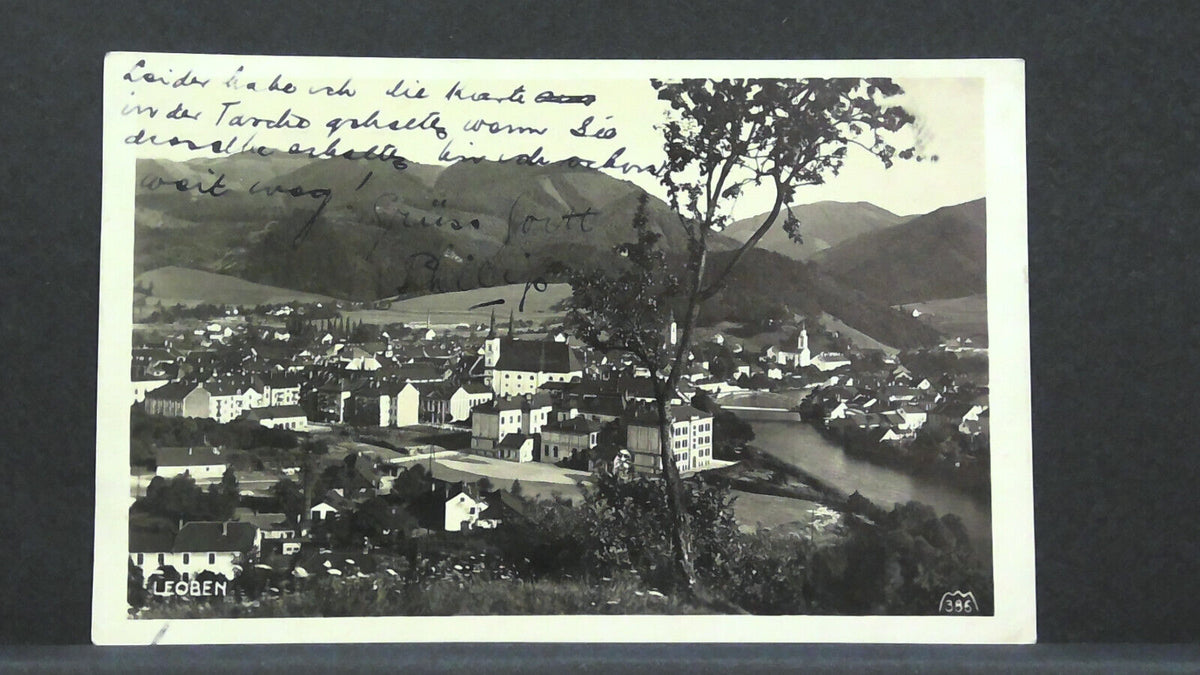 Leider habe ich die Karte
in der Tasche gehalten wenn Sie
dieselbe erhalten bin ich schon
weit weg!
Grüss Gott
Philip
LEOBEN
386